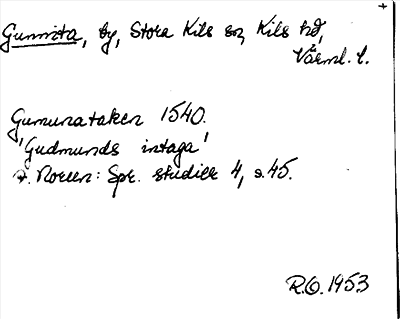 +
Gunnita, by, Stora Kils sn, Kils hd,
Värml. l.
Gumunataken 1540.
'Gudmunds intaga'
A. Noreen: Spr. studier 4, s. 45.
R.O. 1953